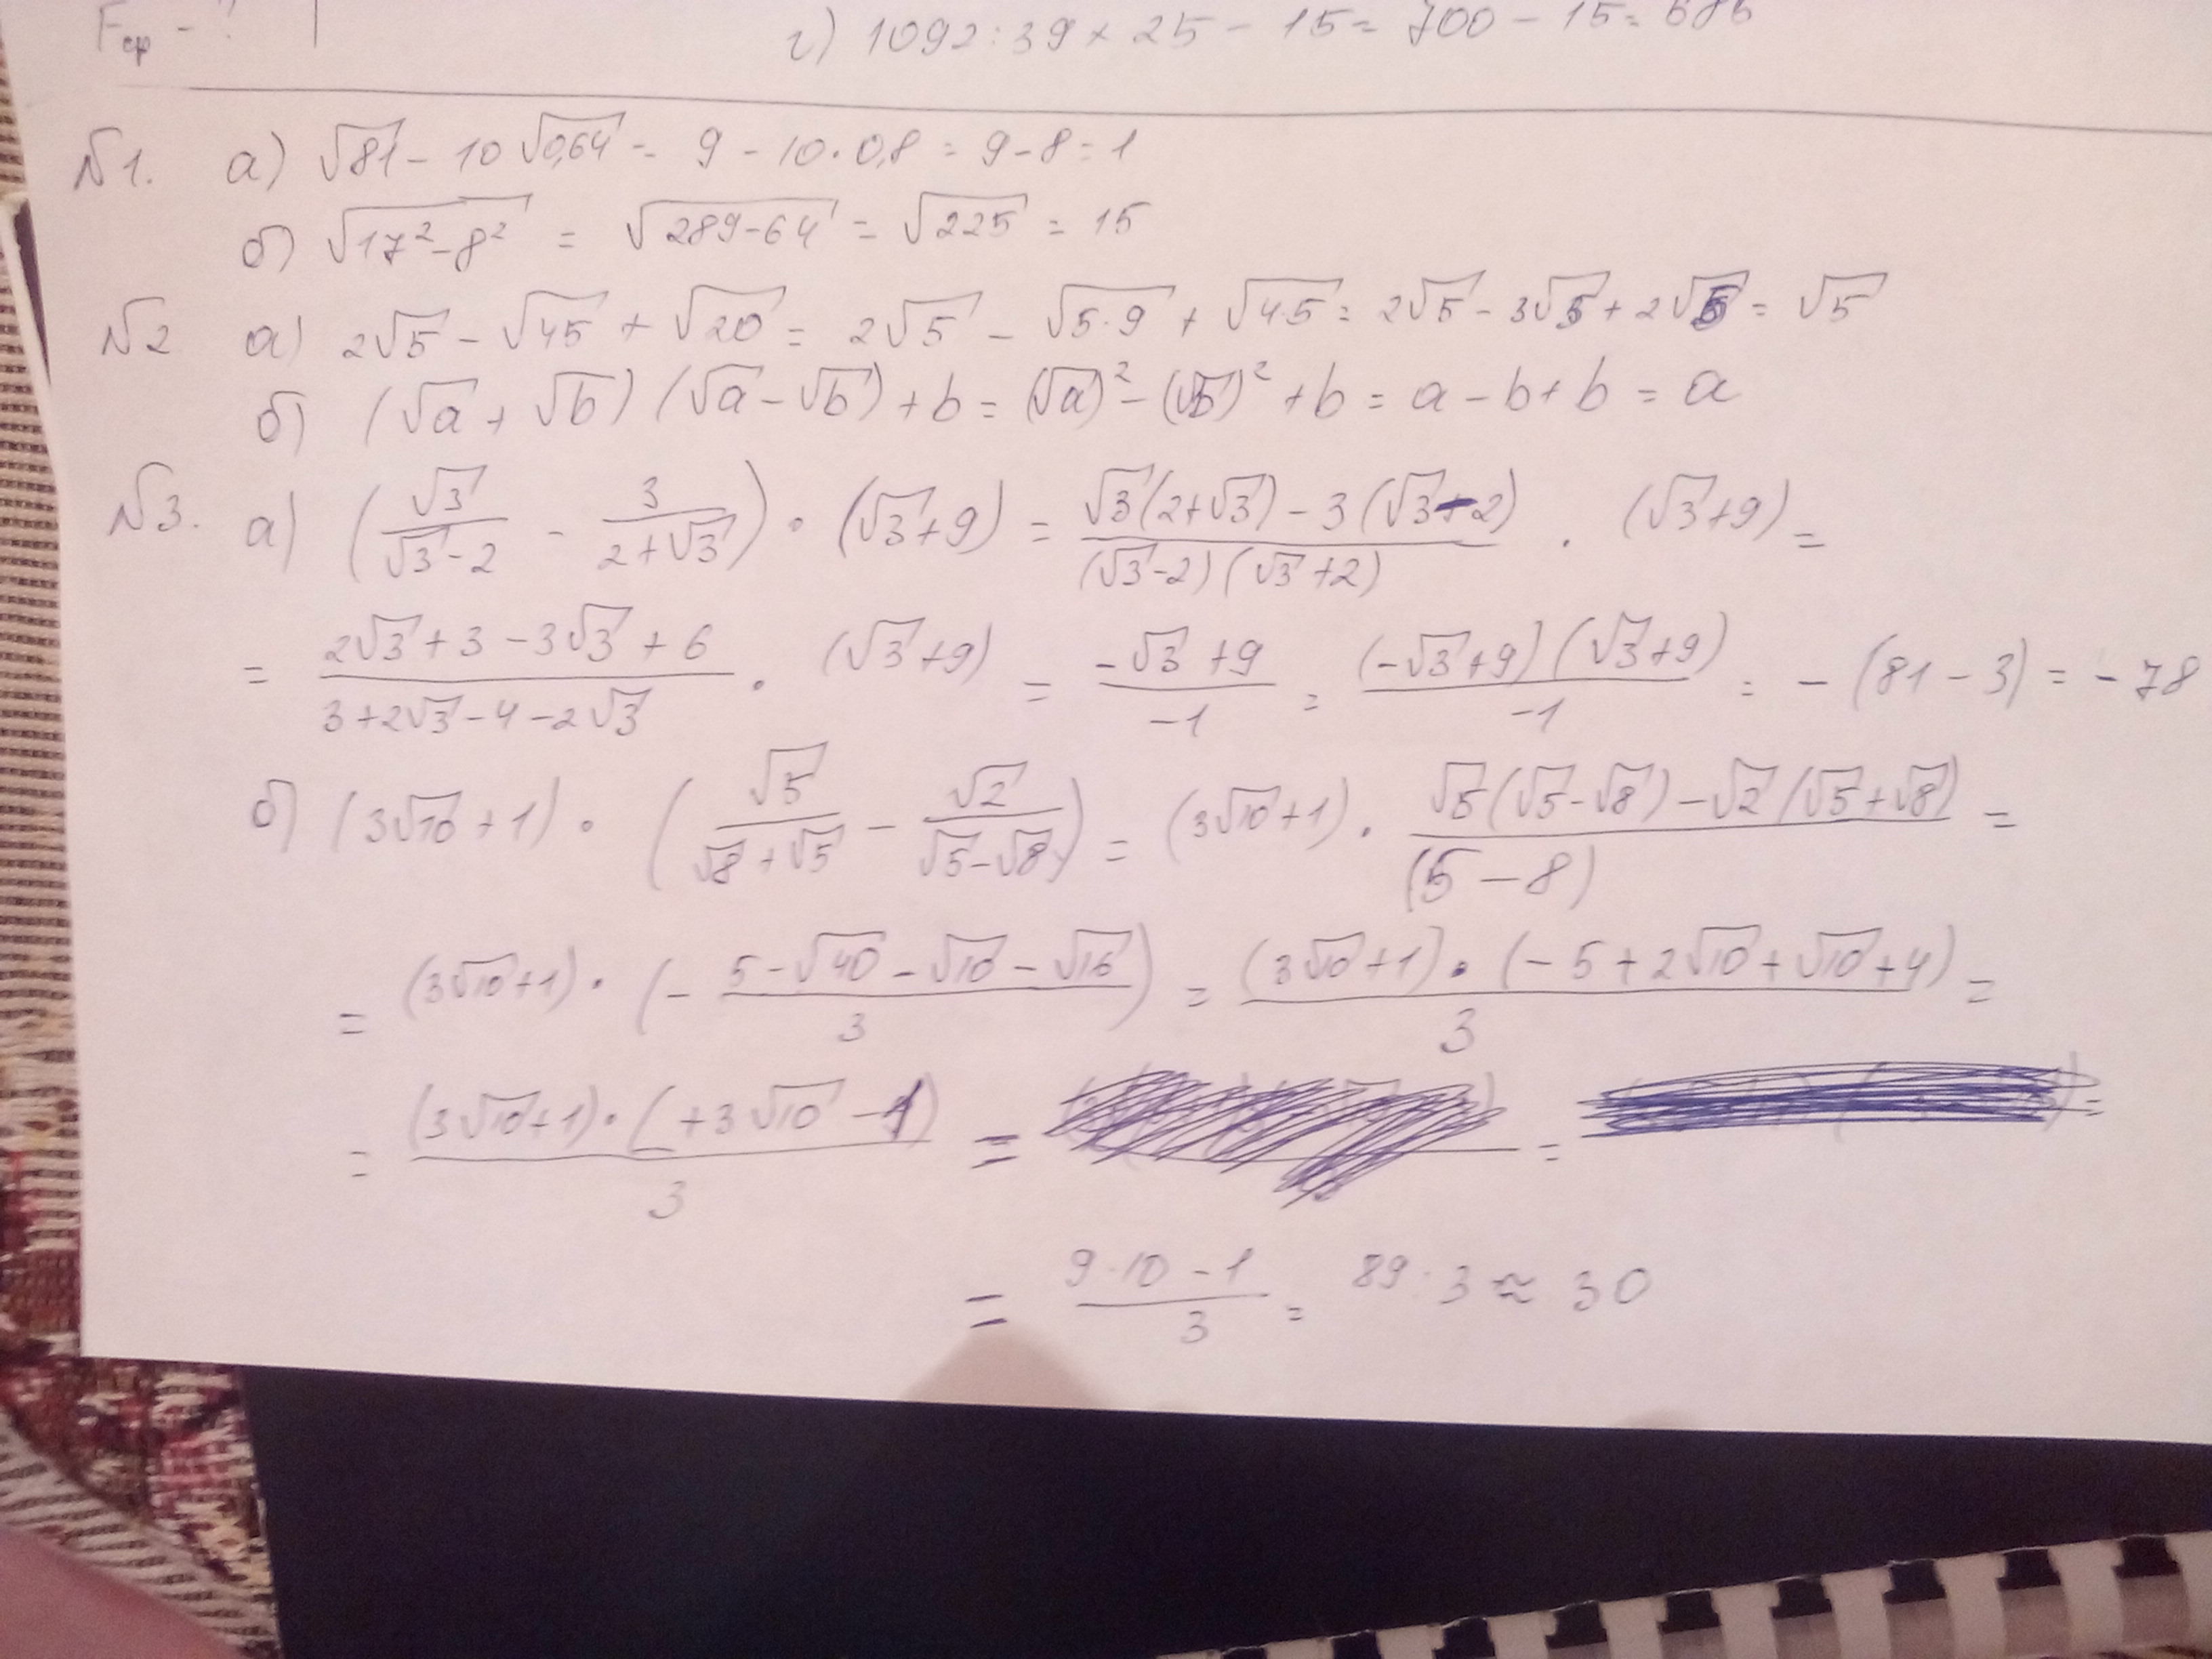 Fср - ?
г) 1092:39 × 25 - 15 = 700 - 15 = 686
№1. а) √81 - 10√0,64 = 9 - 10·0,8 = 9-8=1
б) √(17²-8²) = √(289-64) = √225 = 15
№2 а) 2√5 - √45 + √20 = 2√5 - √(5·9) + √(4·5) = 2√5 - 3√5 + 2√5 = √5
б) (√a + √b) (√a - √b) + b = (√a)² - (√b)² + b = a - b + b = a
№3. а) (√3/(√3-2) - 3/(2+√3)) · (√3+9) = (√3(2+√3) - 3(√3-2))/((√3-2)(√3+2)) · (√3+9) =
= (2√3+3-3√3+6)/(3+2√3-4-2√3) · (√3+9) = (-√3+9)/(-1) = ((-√3+9)(√3+9))/(-1) = -(81-3) = -78
б) (3√10+1) · (√5/(√8+√5) - √2/(√5-√8)) = (3√10+1) · (√5(√5-√8)-√2(√5+√8))/(5-8) =
= (3√10+1) · (- (5-√40-√10-√16)/3) = ((3√10+1)·(-5+2√10+√10+4))/3 =
= ((3√10+1)·(+3√10-1))/3 = = =
= (9·10-1)/3 = 89:3 ≈ 30